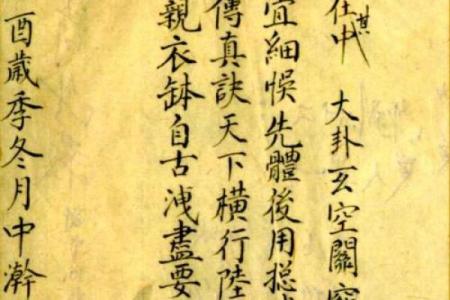 在其中　大卦玄空關竅
宜細悞先體後用揔
傳真訣天下橫行陸
親衣缽自古洩盡要
酉歲季冬月中澣